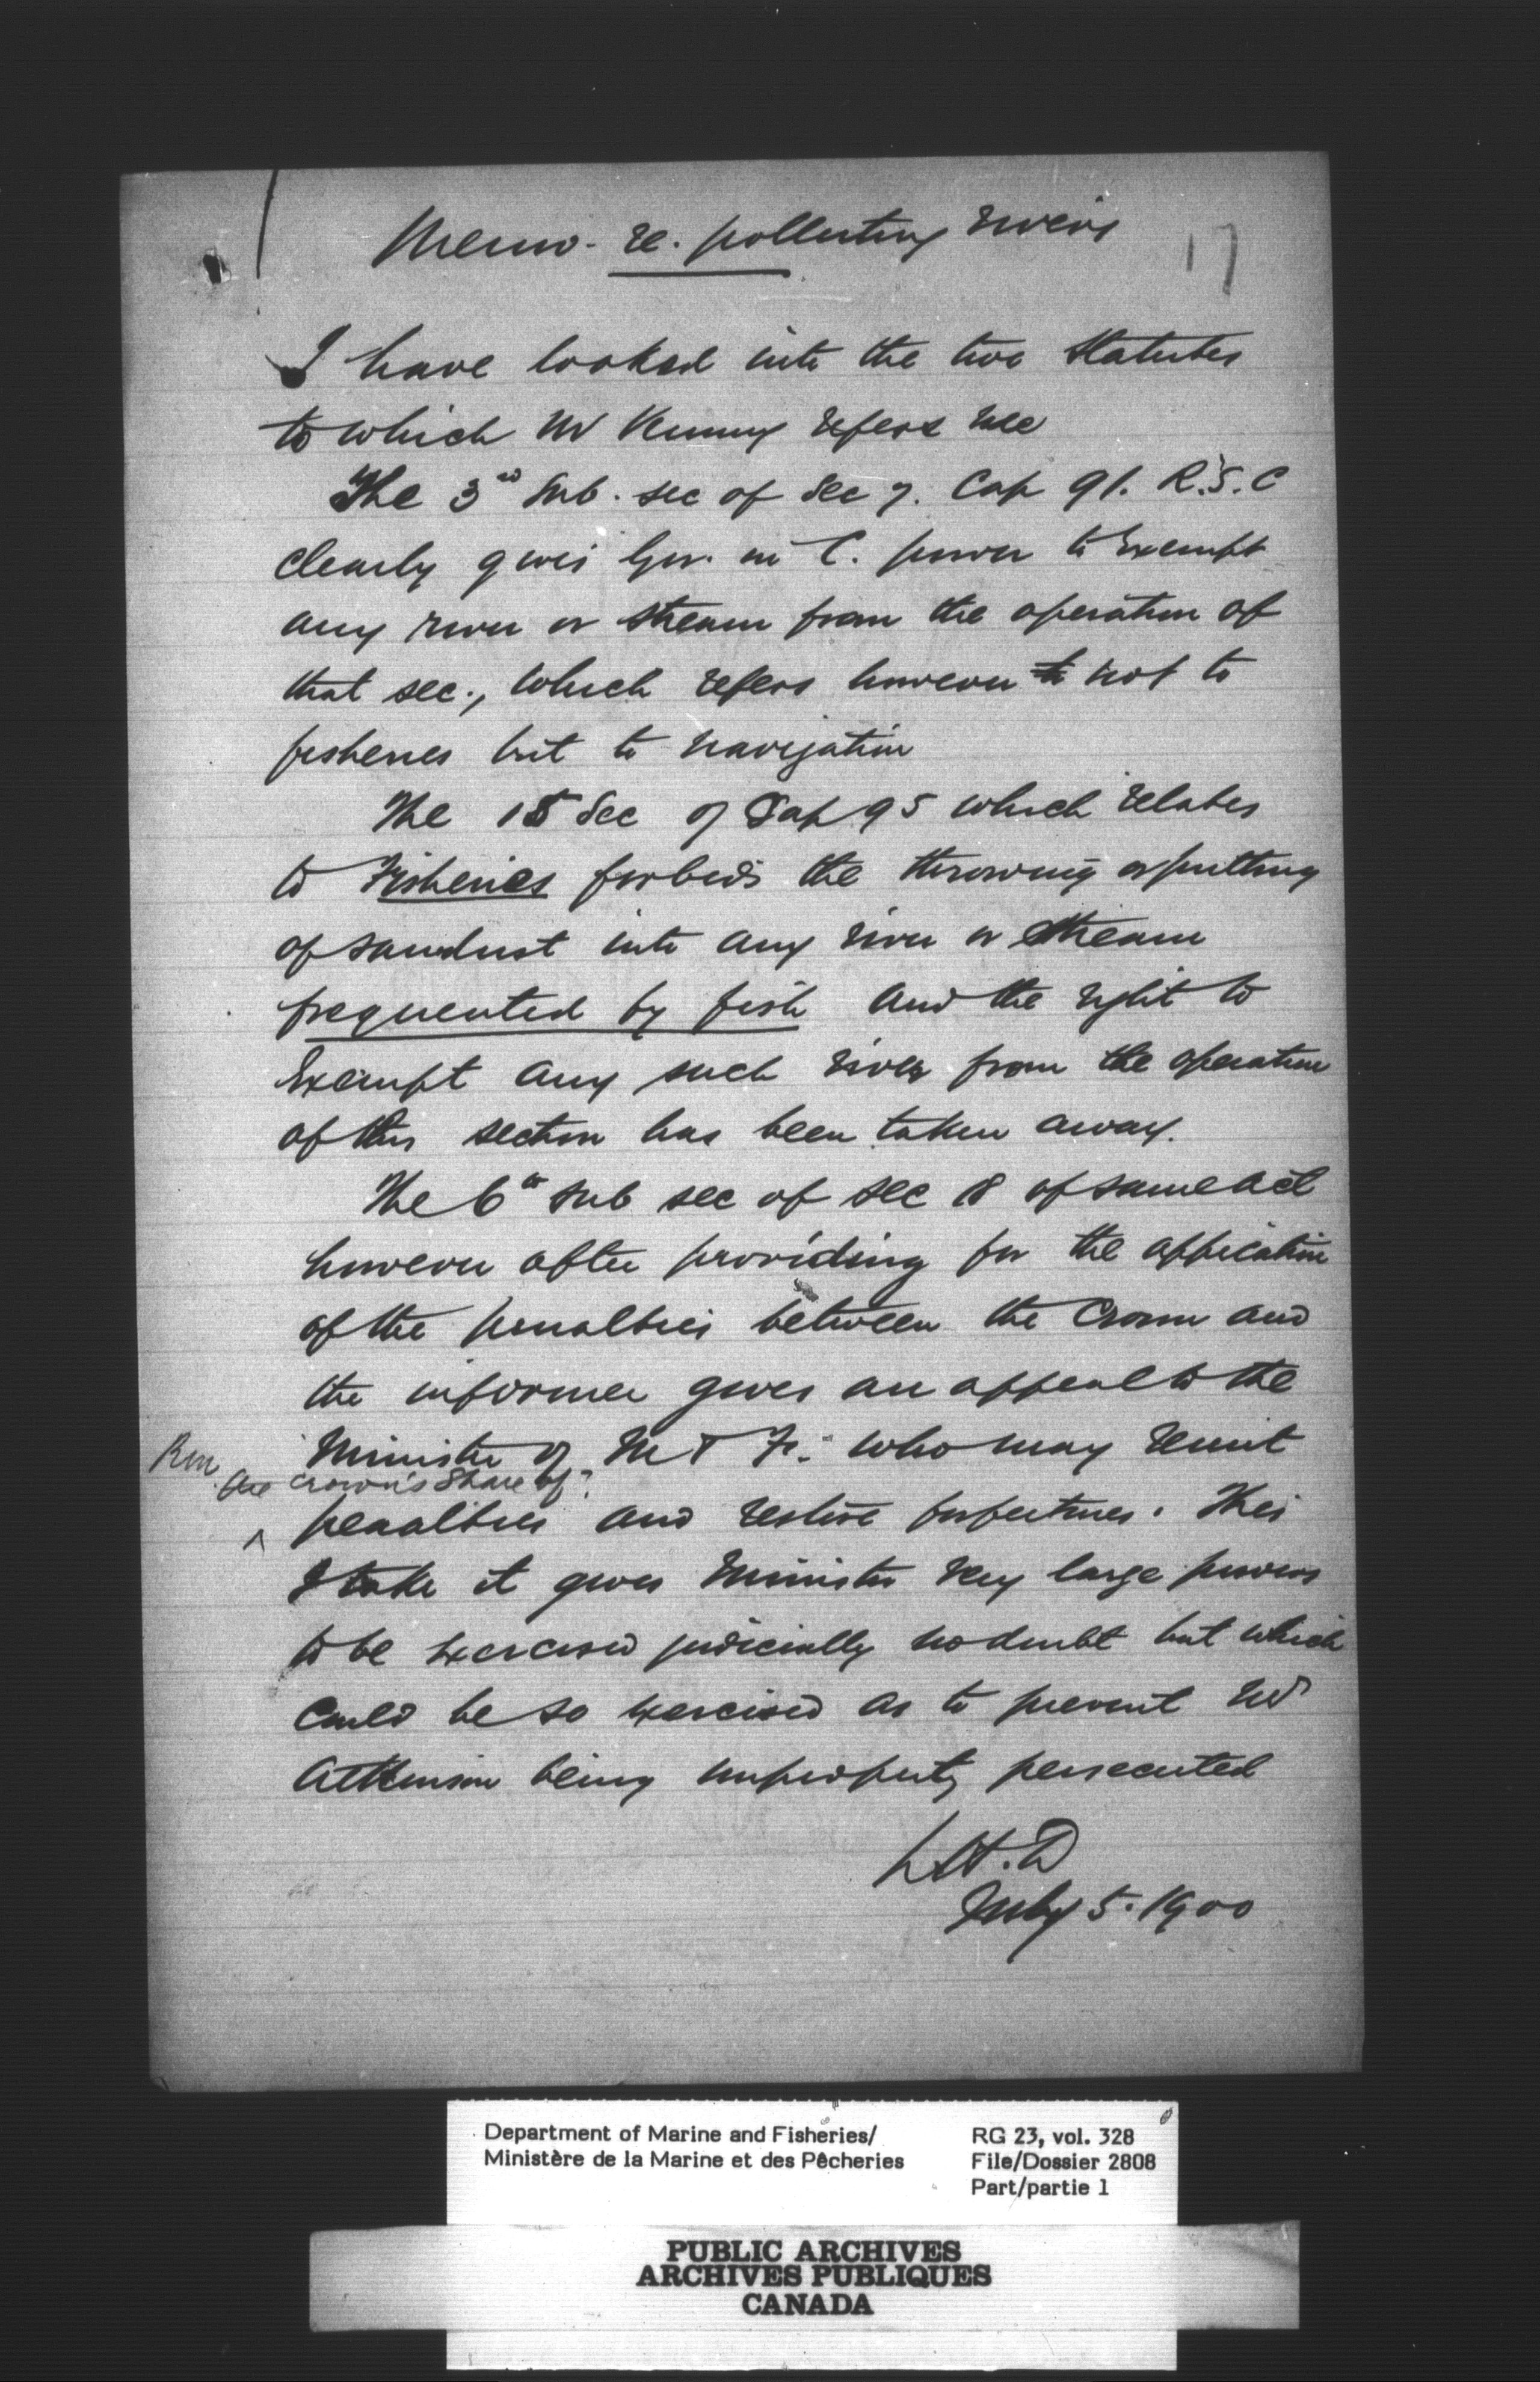 Memo. re. polluting rivers
17
I have looked into the two Statutes
to which Mr Kenny refers me
The 3rd Sub. sec of Sec 7. Cap 91. R.S.C
clearly gives Gov. in C. power to Exempt
any river or stream from the operation of
that sec., which refers however to not to
fisheries but to navigation
The 15 Sec of Cap 95 which relates
to Fisheries forbids the throwing or putting
of sawdust into any river or stream
frequented by fish and the right to
Exempt any such river from the operation
of this section has been taken away.
The 6th sub sec of sec 18 of same act
however after providing for the application
of the penalties between the Crown and
the informer gives an appeal to the
Minister of M & F. who may remit
the crown's share of
penalties and restore forfeitures. This
I take it gives Minister very large powers
to be exercised judicially no doubt but which
could be so exercised as to prevent Mr
Atkinson being improperly persecuted
L.H.D
July 5. 1900
Department of Marine and Fisheries/
Ministère de la Marine et des Pêcheries
RG 23, vol. 328
File/Dossier 2808
Part/partie 1
PUBLIC ARCHIVES
ARCHIVES PUBLIQUES
CANADA